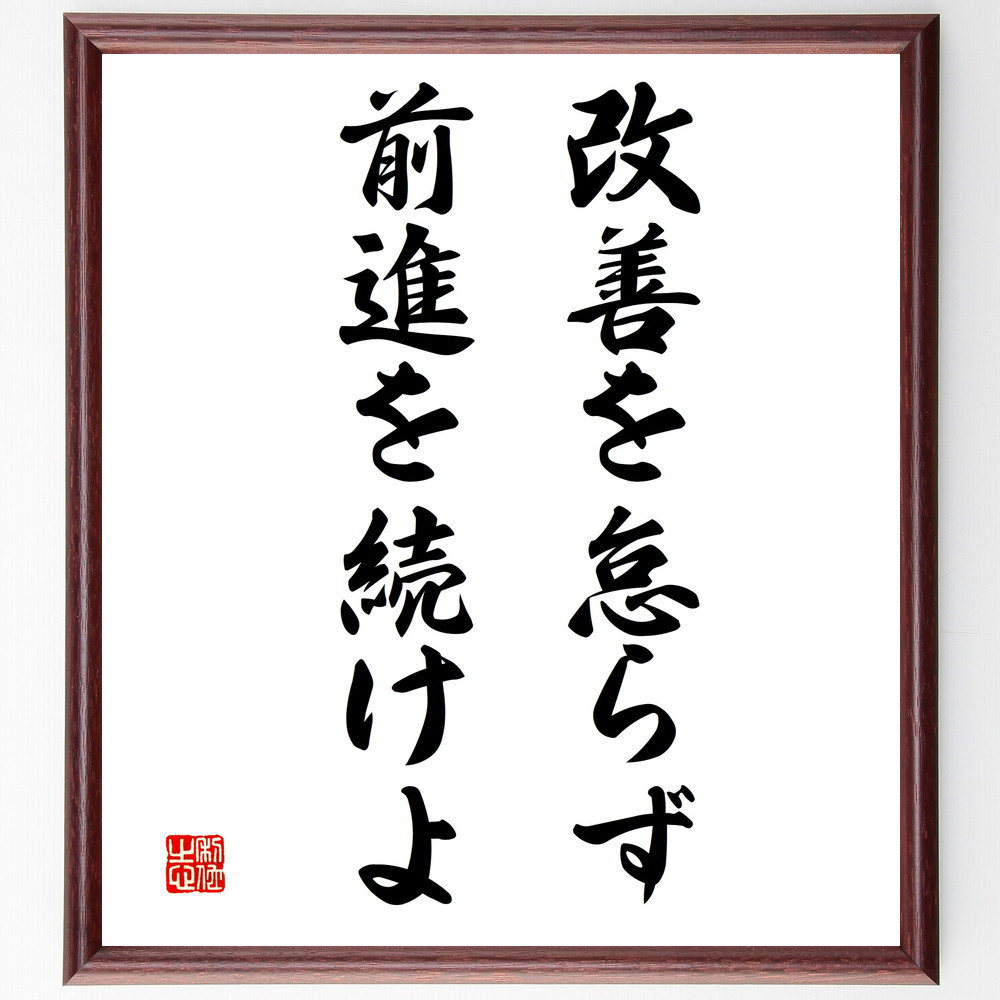 改善を怠らず
前進を続けよ